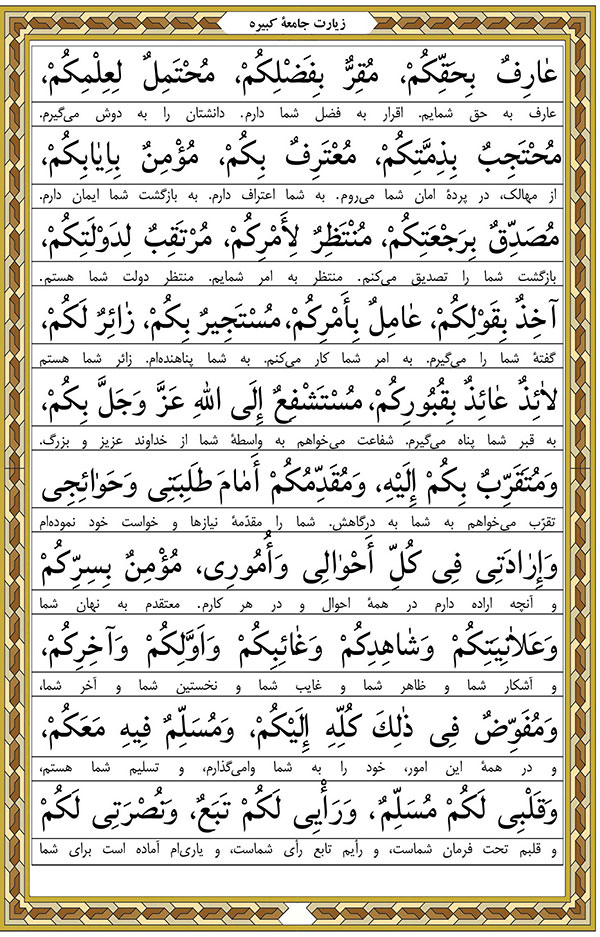 زیارت جامعهٔ کبیره
عٰارِفٌ بِحَقِّکُمْ، مُقِرٌّ بِفَضْلِکُمْ، مُحْتَمِلٌ لِعِلْمِکُمْ،
عارف به حق شمایم. اقرار به فضل شما دارم. دانشتان را به دوش می‌گیرم.
مُحْتَجِبٌ بِذِمَّتِکُمْ، مُعْتَرِفٌ بِکُمْ، مُؤْمِنٌ بِاِیٰابِکُمْ،
از مهالک، در پردهٔ امان شما می‌روم. به شما اعتراف دارم. به بازگشت شما ایمان دارم.
مُصَدِّقٌ بِرَجْعَتِکُمْ، مُنْتَظِرٌ لِأَمْرِکُمْ، مُرْتَقِبٌ لِدَوْلَتِکُمْ،
بازگشت شما را تصدیق می‌کنم. منتظر به امر شمایم. منتظر دولت شما هستم.
آخِذٌ بِقَوْلِکُمْ، عٰامِلٌ بِأَمْرِکُمْ، مُسْتَجِیرٌ بِکُمْ، زٰائِرٌ لَکُمْ،
گفتهٔ شما را می‌گیرم. به امر شما کار می‌کنم. به شما پناهنده‌ام. زائر شما هستم
لاٰئِذٌ عٰائِذٌ بِقُبُورِکُمْ، مُسْتَشْفِعٌ إِلَی اللهِ عَزَّ وَجَلَّ بِکُمْ،
به قبر شما پناه می‌گیرم. شفاعت می‌خواهم به واسطهٔ شما از خداوند عزیز و بزرگ.
وَمُتَقَرِّبٌ بِکُمْ إِلَیْهِ، وَمُقَدِّمُکُمْ أَمٰامَ طَلِبَتِی وَحَوٰائِجِی
تقرّب می‌خواهم به شما به درگاهش. شما را مقدّمهٔ نیازها و خواست خود نموده‌ام
وَإِرٰادَتِی فِی کُلِّ أَحْوٰالِی وَأُمُورِی، مُؤْمِنٌ بِسِرِّکُمْ
و آنچه اراده دارم در همهٔ احوال و در هر کارم. معتقدم به نهان شما
وَعَلاٰنِیَتِکُمْ وَشٰاهِدِکُمْ وَغٰائِبِکُمْ وَاَوَّلِکُمْ وَآخِرِکُمْ،
و آشکار شما و ظاهر شما و غایب شما و نخستین شما و آخر شما،
وَمُفَوِّضٌ فِی ذٰلِكَ کُلِّهِ إِلَیْکُمْ، وَمُسَلِّمٌ فِیهِ مَعَکُمْ،
و در همهٔ این امور، خود را به شما وامی‌گذارم، و تسلیم شما هستم،
وَقَلْبِی لَکُمْ مُسَلِّمٌ، وَرَأْیِی لَکُمْ تَبَعٌ، وَنُصْرَتِی لَکُمْ
و قلبم تحت فرمان شماست، و رأیم تابع رأی شماست، و یاری‌ام آماده است برای شما